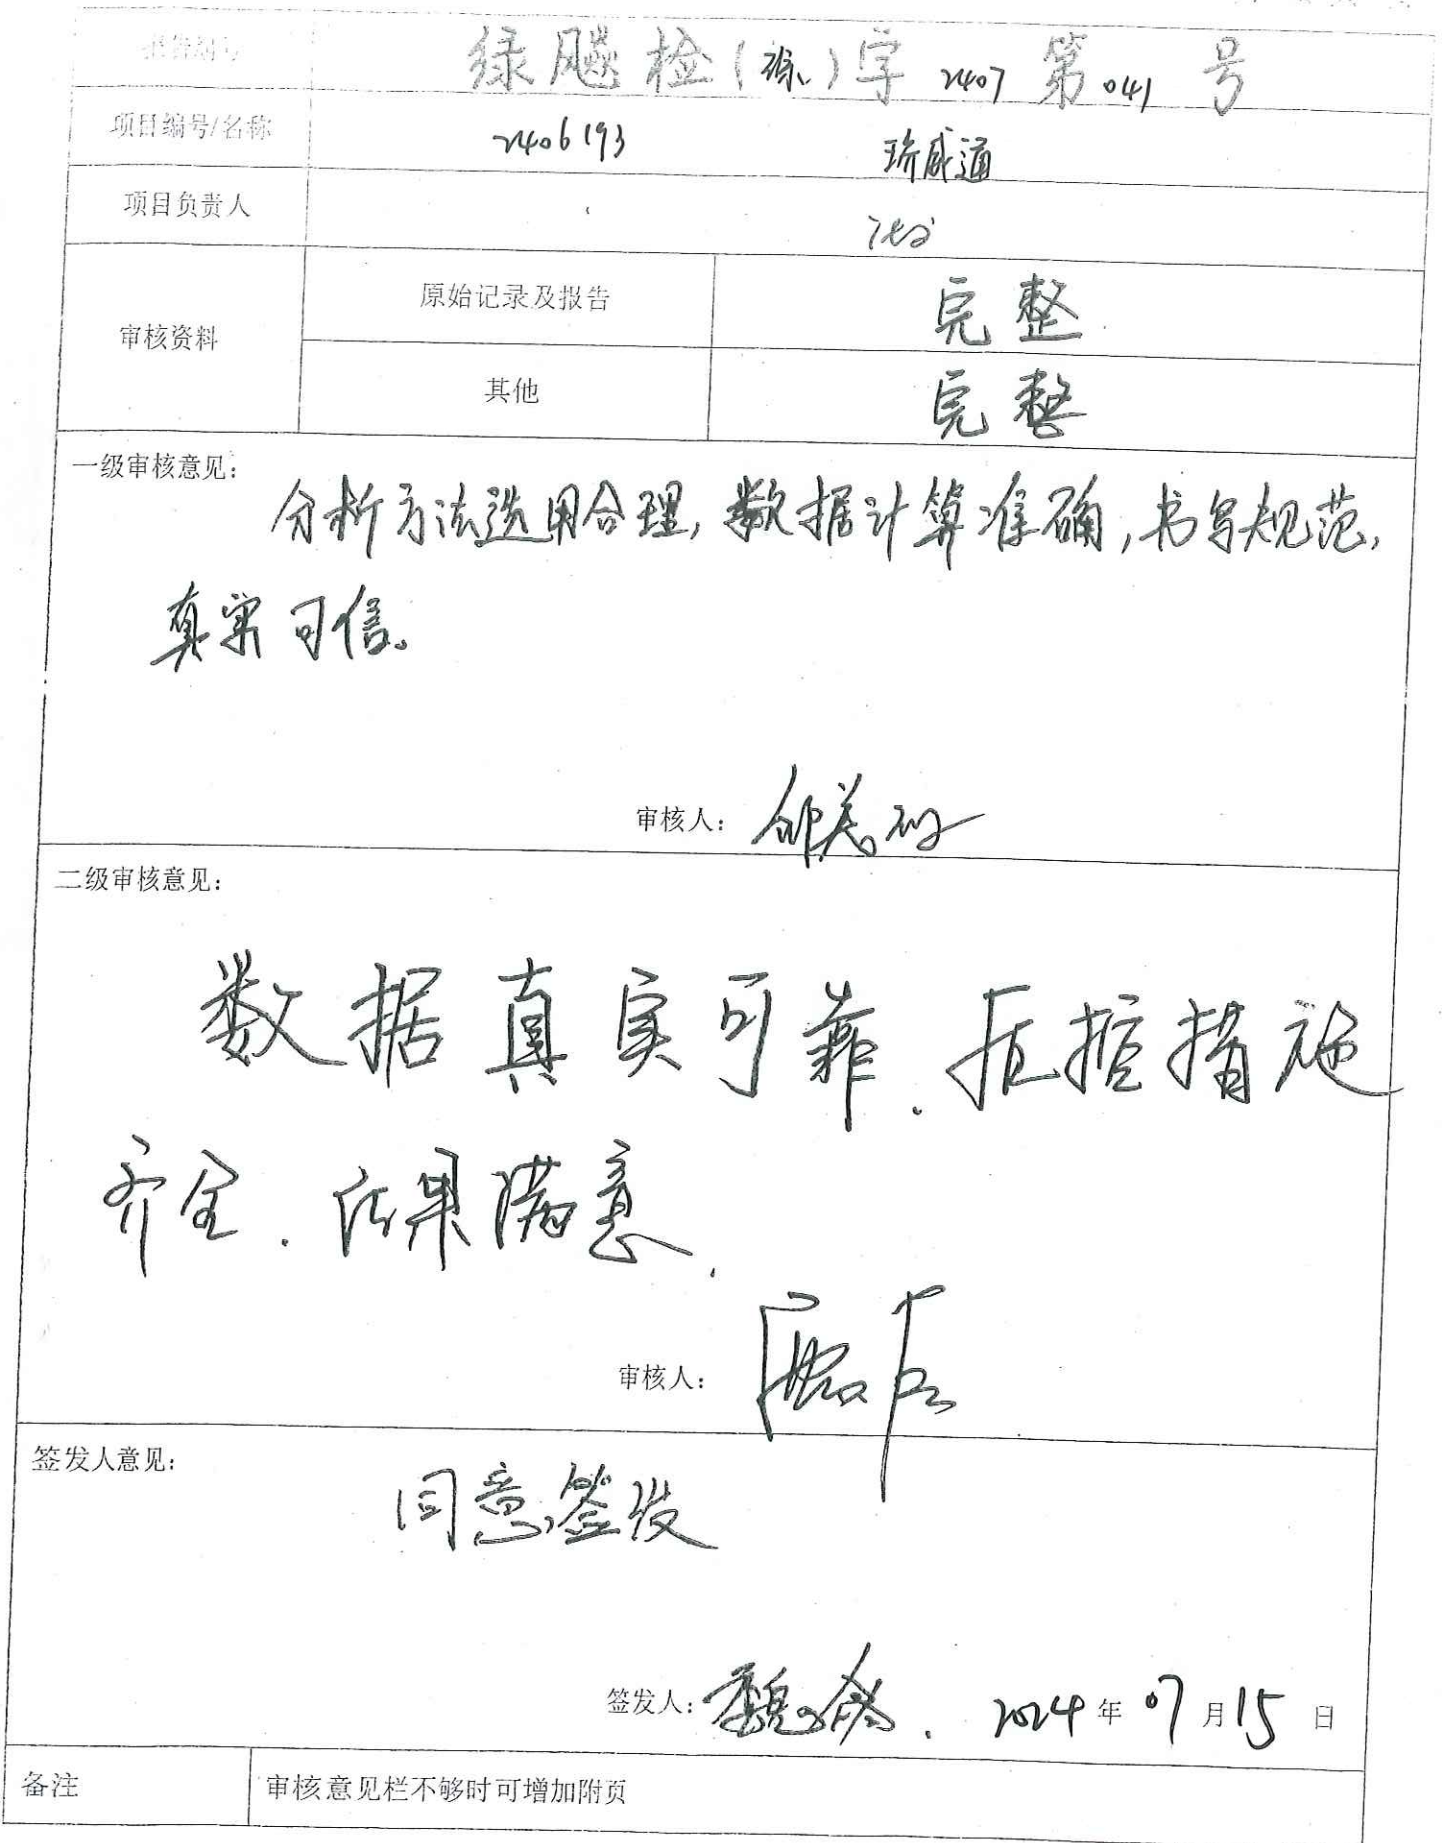 报告编号 绿飚检(综)字 2407 第 041 号
项目编号/名称 2406193 瑞威通
项目负责人
审核资料 原始记录及报告 完整
其他 完整
一级审核意见:
分析方法选用合理,数据计算准确,书写规范,
真实可信。
审核人:
二级审核意见:
数据真实可靠.质控措施
齐全.结果满意.
审核人:
签发人意见:
同意签发
签发人: 2024 年 07 月 15 日
备注 审核意见栏不够时可增加附页